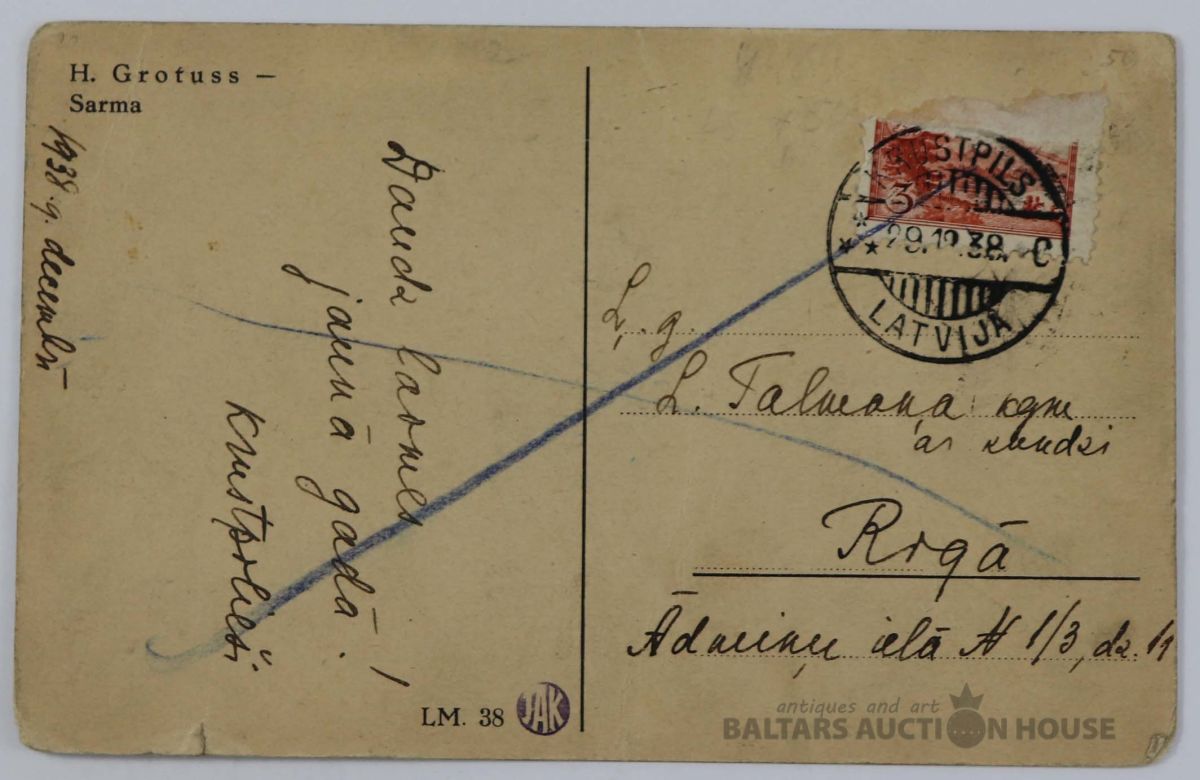 H. Grotuss —
Sarma
1938. g. decembrī
Daudz laimes
jaunā gadā!
Krustpilieši
LM. 38
JAK
KRUSTPILS
29.12.38. C
LATVIJA
3
Ļ. g.
L. Talmoņa kgm
ar kundzi
Rīgā
Ādmiņu ielā № 1/3, dz. 11
antiques and art
BALTARS AUCTION HOUSE